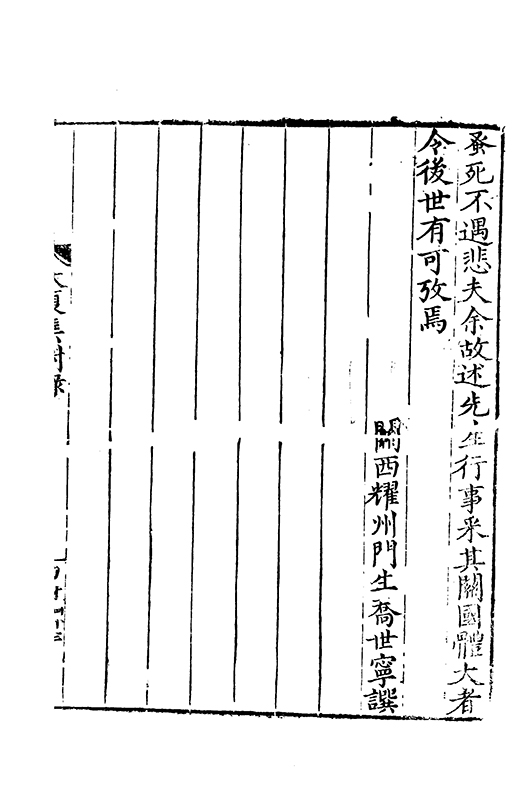 蚤死不遇悲夫余故述先生行事采其關國體大者
令後世有可攷焉
關西耀州門生喬世寧譔
大復集附錄